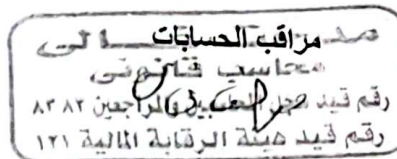 مراقب الحسابات
محاسب قانونى
رقم قيد سجل المحاسبين والمراجعين ٨٣٨٢
رقم قيد هيئة الرقابة المالية ١٢١